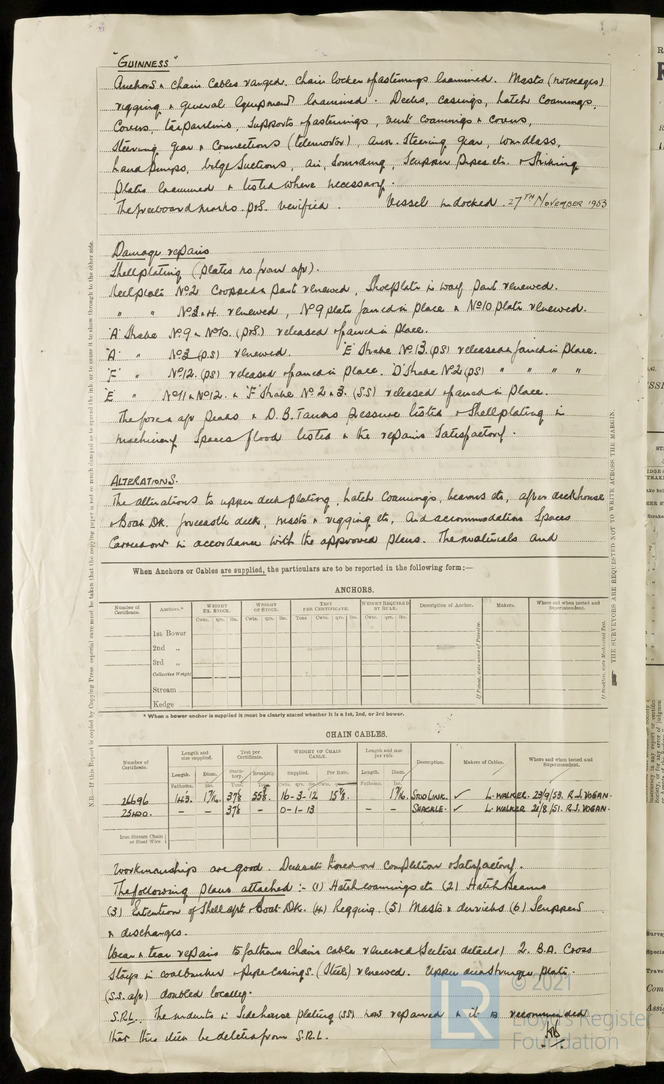 "GUINNESS"
Anchors & chain cables ranged. Chain locker & fastenings examined. Masts (
rigging & general equipment examined. Decks, casings, hatch coamings,
covers, tarpaulins, supports & fastenings, vent coamings & covers,
steering gear & connections (telemotor), aux. steering gear, windlass,
hand pumps, bilge suctions, air, sounding, scupper pipes etc. & striking
plates examined & tested where necessary.
The freeboard marks p&s. verified. Vessel undocked 27TH NOVEMBER 1953
Damage repairs
Shell plating (plates no. from aft).
Keel plate No 2 cropped & part renewed, shoeplate in way part renewed.
" " No 3 & 4 renewed, No 9 plate faired in place & No 10 plate renewed.
'A' Strake No. 9 & No 10. (P&S) released & faired in place.
'A' " No 3 (P.S) renewed. 'E' Strake No. 13. (PS) released & faired in place.
'F' " No 12. (PS) released & faired in place. 'D' Strake No 2 (PS) " " " "
'E' " No 11 & No 12. & 'F' Strake No. 2 & 3. (SS) released & faired in place.
The fore & aft peaks & D.B. Tanks pressure tested & shell plating in
machinery space flood tested & the repairs satisfactory.
ALTERATIONS.
The alterations to upper deck plating, hatch coamings, beams etc, after deckhouse
& Boat Dk. forecastle deck, masts & rigging etc, and accommodation spaces
carried out in accordance with the approved plans. The materials and
When Anchors or Cables are supplied, the particulars are to be reported in the following form:—
ANCHORS.
Number of Certificate. Anchors.* WEIGHT EX. STOCK. WEIGHT OF STOCK. TEST PER CERTIFICATE. WEIGHT REQUIRED BY RULE. Description of Anchor. Makers. Where and when tested and Superintendent.
Cwts. qrs. lbs. Cwts. qrs. lbs. Tons Cwt. qrs. lbs. Cwts. qrs. lbs.
1st Bower
2nd "
3rd "
Collective Weight
Stream
Kedge
* When a bower anchor is supplied it must be clearly stated whether it is a 1st, 2nd, or 3rd bower.
CHAIN CABLES.
Number of Certificate. Length and size supplied. Test per Certificate. WEIGHT OF CHAIN CABLE. Length and size per rule. Description. Makers of Cables. Where and when tested and Superintendent.
Length. Diam. Statutory. Breaking. Supplied. Per Rule. Length. Diam.
26696 STUD LINK. ✓ L. WALKER. 23/9/53. R.J. VOGAN.
– – – 0-1-13 – – SHACKLE. ✓ L. WALKER 21/8/51. R.J. VOGAN.
Iron Stream Chain or Steel Wire
Workmanships are good. Decks etc hosed on completion & satisfactory.
The following plans attached :- (1) Hatch coamings etc (2) Hatch Beams
(3) Extention of Shell aft & Boat Dk. (4) Rigging. (5) Masts & derricks (6) Scuppers
& discharges.
Wear & tear repairs 15 fathoms chain cable renewed (see list details) 2. B.A. Cross
stays in coalbunker & pipe casings. (Steel) renewed. Upper deck stringer plate.
(S.S. aft) doubled locally.
S.R.L. The indents in side house plating (SS) now repaired & it is recommended
that this item be deleted from S.R.L.
N.B.—If this Report is copied by Copying Press, especial care must be taken that the copying paper is not so much damped as to spread the ink or to cause it to show through to the other side.
THE SURVEYORS ARE REQUESTED NOT TO WRITE ACROSS THE MARGIN.
LR
© 2021
Lloyd's Register
Foundation